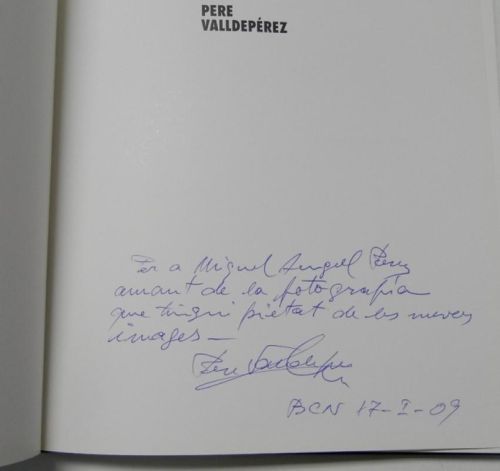 PERE
VALLDEPÉREZ
Per a Miguel Angel Pérez
amant de la fotografia
que tingui pietat de les meves
images —
Pere Valldepérez
BCN 17-I-09